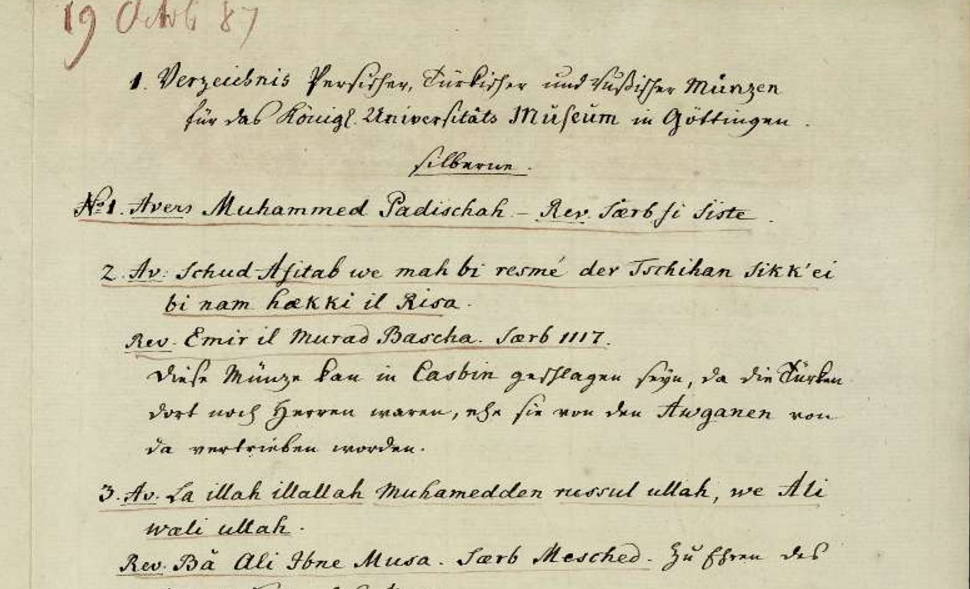 19 Octob 87
1. Verzeichnis Persischer, Türkischer und Rußischer Münzen
für das Königl. Universitäts Museum in Göttingen.
silberne.
No 1. Avers Muhammed Padischah – Rev. Særb si Siste.
2. Av: Schud Afitab we mah bi resmé der Tschihan Sikk'ei
bi nam hækki il Risa.
Rev. Emir il Murad Bascha. Særb 1117.
diese Münze kan in Casbin geschlagen seyn, da die Türken
dort noch Herren waren, ehe sie von den Awganen von
da vertrieben worden.
3. Av. La illah illallah Muhamedden russul ullah, we Ali
wæli ullah.
Rev. Bä Ali Ibne Musa. Særb Mesched. Zu Ehren des